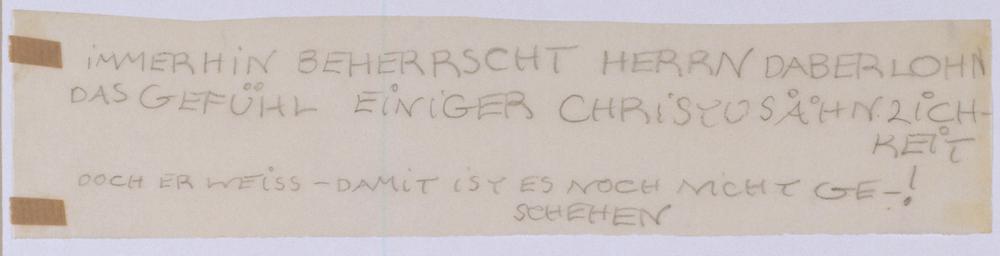 iMMERHiN BEHERRSCHT HERRN DABERLOHN
DAS GEFÜHL EINIGER CHRiSTUSÄHNLICH-
KEIT
DOCH ER WEISS – DAMiT iST ES NOCH NICHT GE-!
SCHEHEN